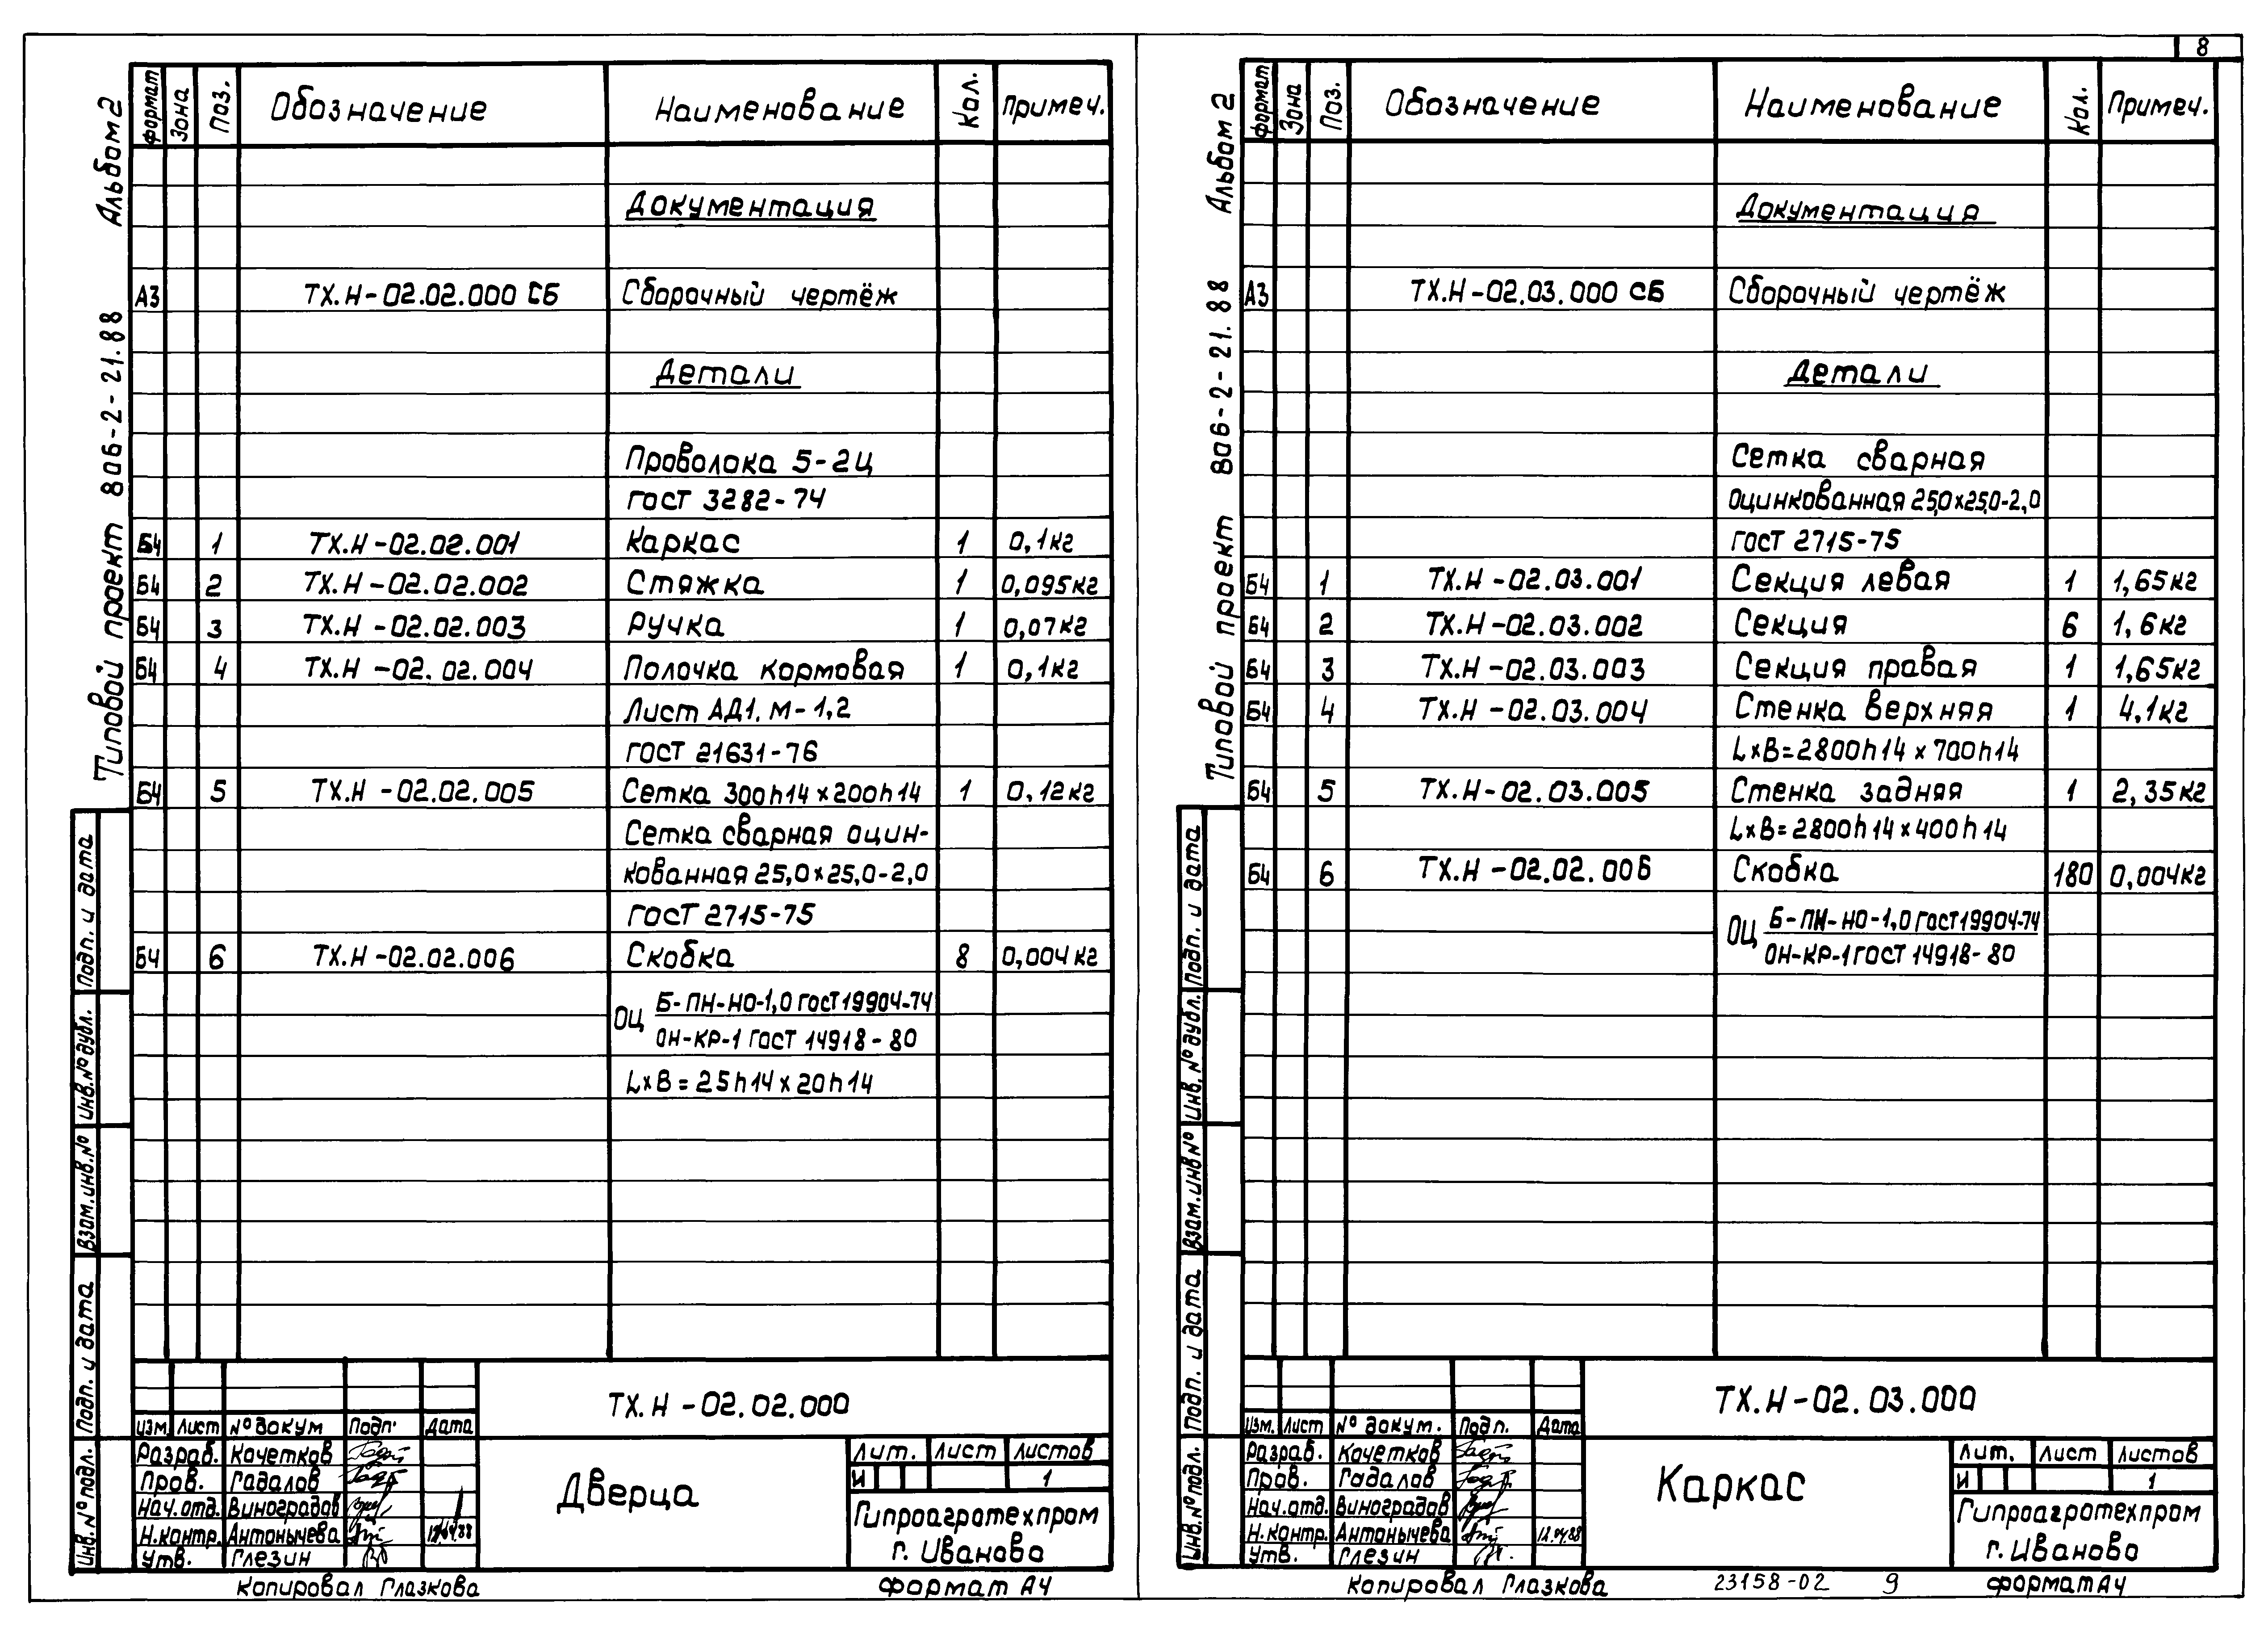 8
Альбом 2
Типовой проект 806-2-21.88
Формат Зона Поз. Обозначение Наименование Кол. Примеч.
Документация
А3 ТХ.Н-02.02.000 СБ Сборочный чертёж
Детали
Проволока 5-2Ц
ГОСТ 3282-74
Б4 1 ТХ.Н-02.02.001 Каркас 1 0,1кг
Б4 2 ТХ.Н-02.02.002 Стяжка 1 0,095кг
Б4 3 ТХ.Н-02.02.003 Ручка 1 0,07кг
Б4 4 ТХ.Н-02.02.004 Полочка кормовая 1 0,1кг
Лист АД1.М-1,2
ГОСТ 21631-76
Б4 5 ТХ.Н-02.02.005 Сетка 300h14×200h14 1 0,12кг
Сетка сварная оцин-
кованная 25,0×25,0-2,0
ГОСТ 2715-75
Б4 6 ТХ.Н-02.02.006 Скобка 8 0,004кг
ОЦ Б-ПН-НО-1,0 ГОСТ 19904-74
ОН-КР-1 ГОСТ 14918-80
L×B=25h14×20h14
Подп. и дата
Инв.№ дубл.
Взам.инв.№
Подп. и дата
Инв.№ подл.
ТХ.Н-02.02.000
Изм. Лист № докум Подп. Дата
Разраб. Кочетков
Пров. Гадалов
Нач.отд. Виноградов
Н.контр. Антонычева 12.04.88
Утв. Глезин
Дверца
Лит. Лист Листов
И 1
Гипроагротехпром
г. Иваново
Копировал Глазкова Формат А4
Альбом 2
Типовой проект 806-2-21.88
Формат Зона Поз. Обозначение Наименование Кол. Примеч.
Документация
А3 ТХ.Н-02.03.000 СБ Сборочный чертёж
Детали
Сетка сварная
оцинкованная 25,0×25,0-2,0
ГОСТ 2715-75
Б4 1 ТХ.Н-02.03.001 Секция левая 1 1,65кг
Б4 2 ТХ.Н-02.03.002 Секция 6 1,6кг
Б4 3 ТХ.Н-02.03.003 Секция правая 1 1,65кг
Б4 4 ТХ.Н-02.03.004 Стенка верхняя 1 4,1кг
L×B=2800h14×700h14
Б4 5 ТХ.Н-02.03.005 Стенка задняя 1 2,35кг
L×B=2800h14×400h14
Б4 6 ТХ.Н-02.02.006 Скобка 180 0,004кг
ОЦ Б-ПН-НО-1,0 ГОСТ 19904-74
ОН-КР-1 ГОСТ 14918-80
Подп. и дата
Инв.№ дубл.
Взам.инв.№
Подп. и дата
Инв.№ подл.
ТХ.Н-02.03.000
Изм. Лист № докум. Подп. Дата
Разраб. Кочетков
Пров. Гадалов
Нач.отд. Виноградов
Н.контр. Антонычева 12.04.88
Утв. Глезин
Каркас
Лит. Лист Листов
И 1
Гипроагротехпром
г. Иваново
Копировал Глазкова 23158-02 9 Формат А4